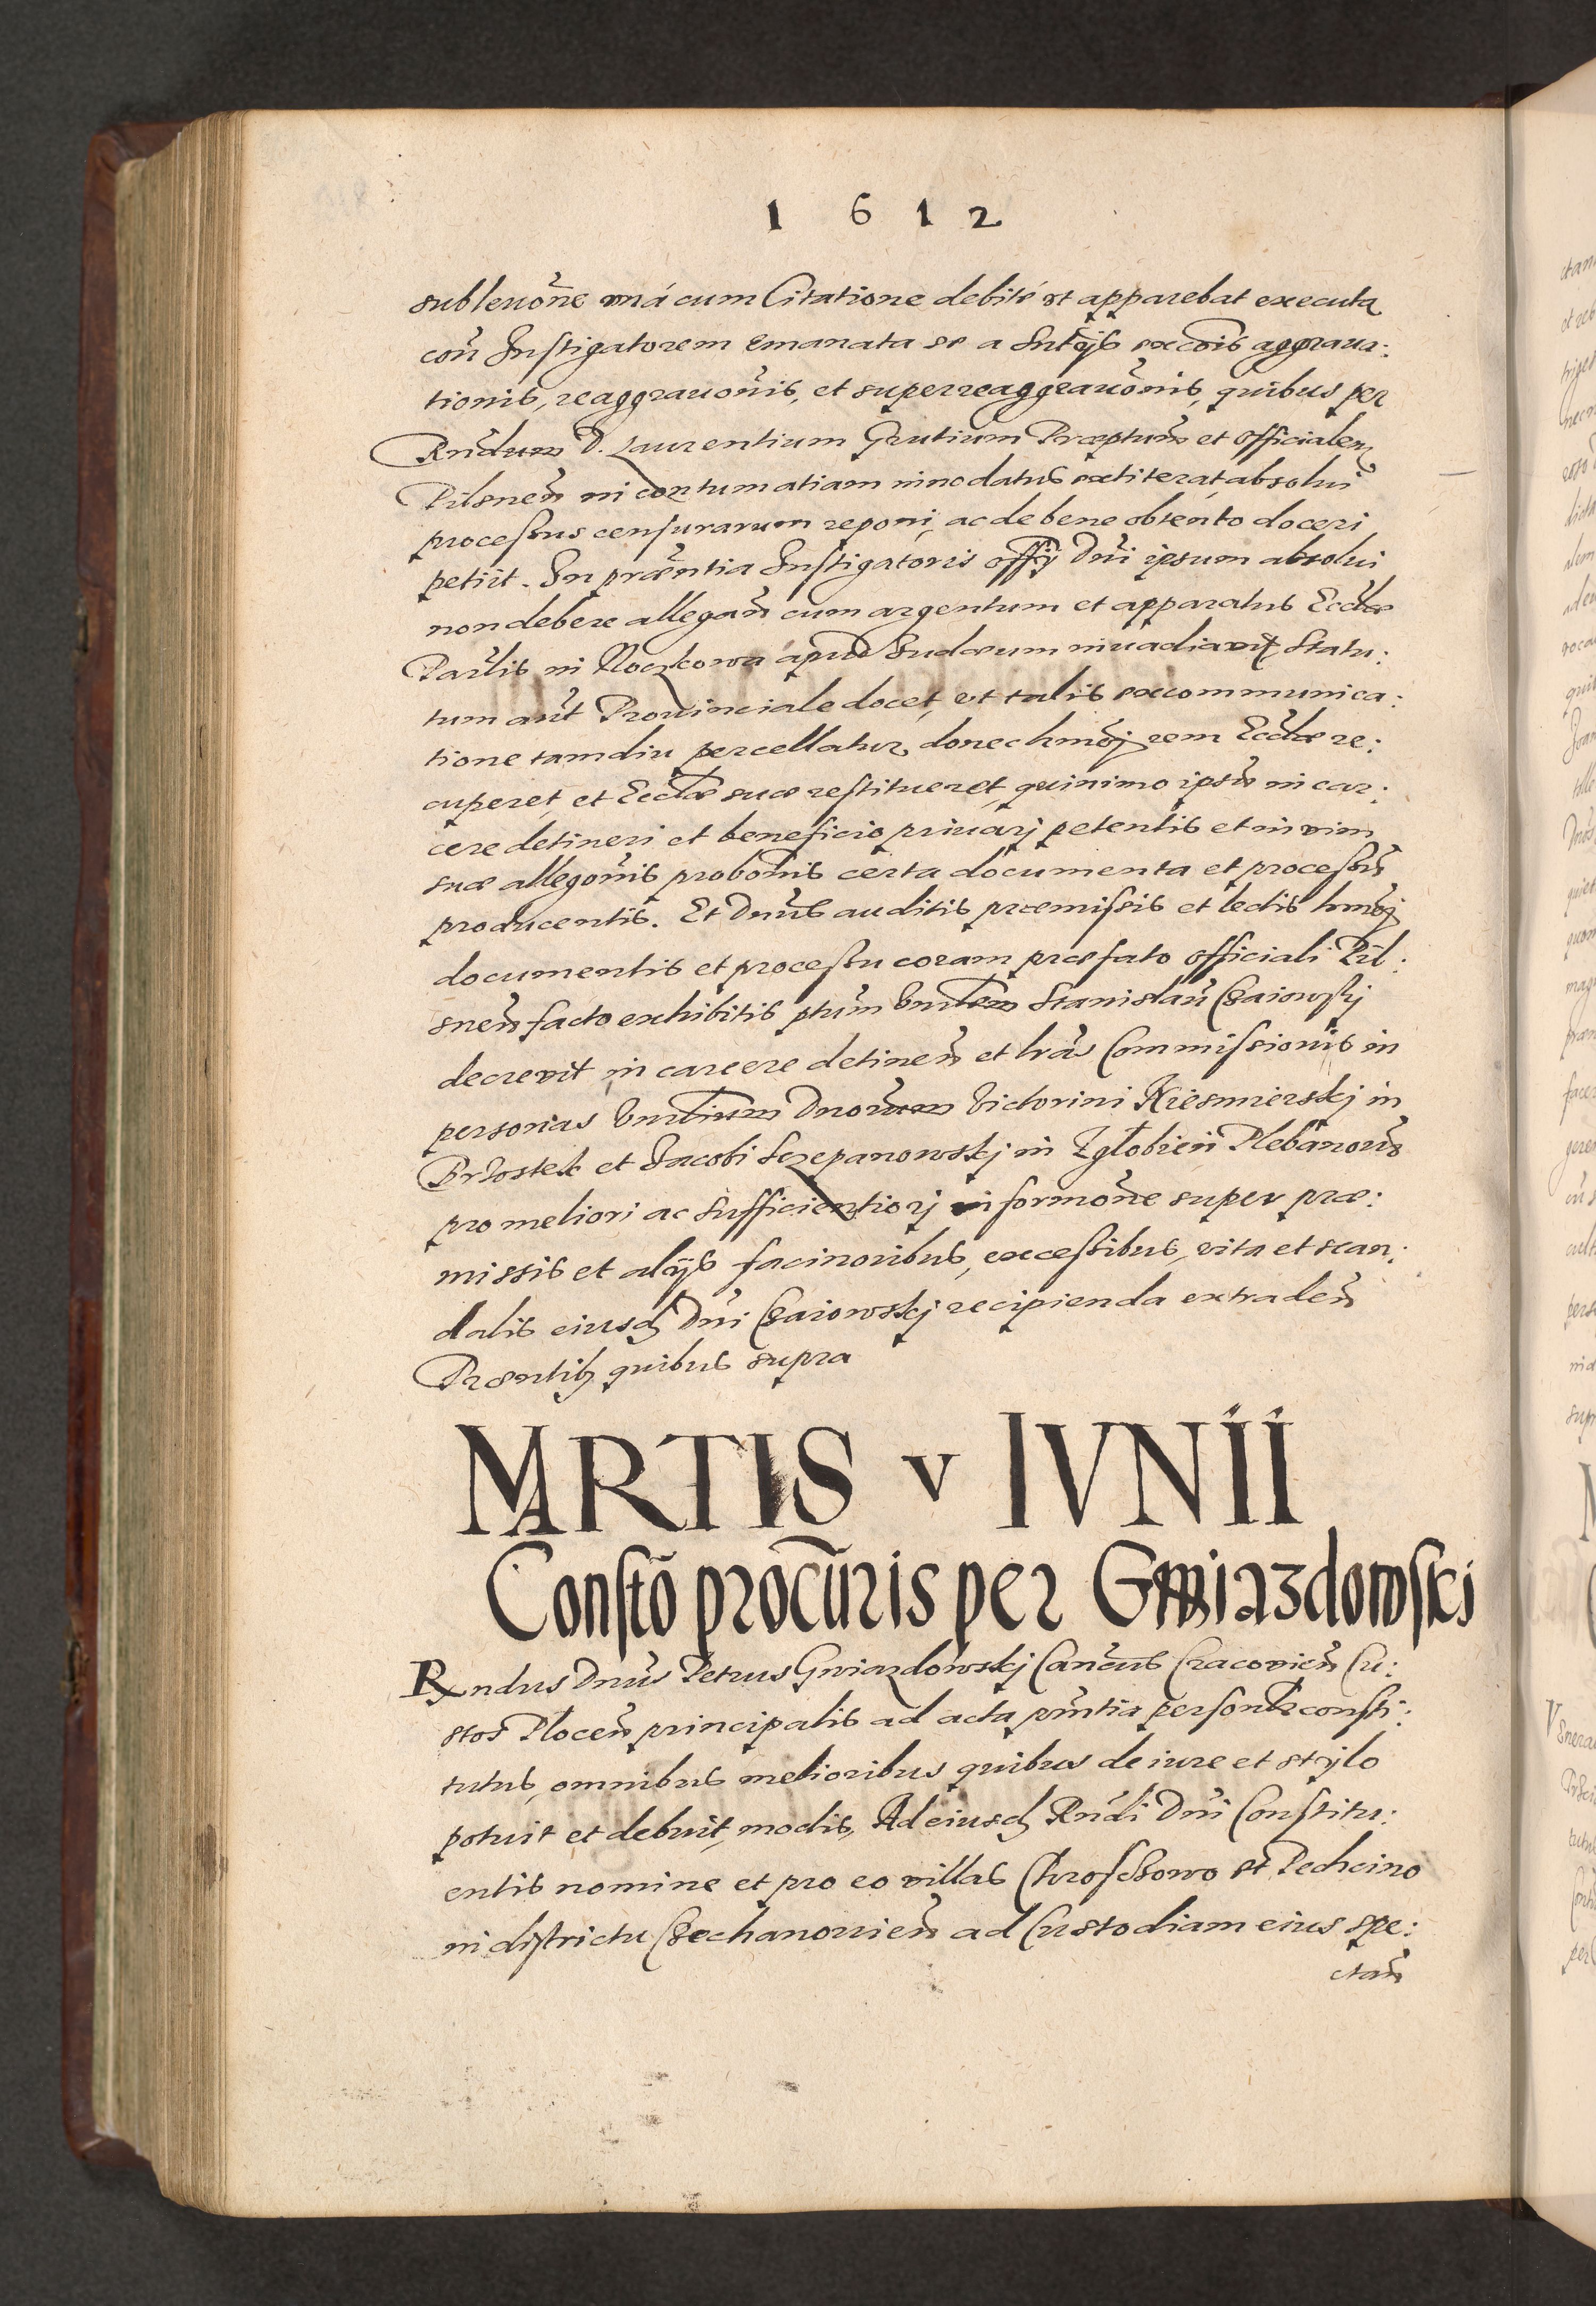 1 6 1 2
subleuoñe vná cum Citatione debité vt apparebat executa
coñ Instigatorem emanata se a Sntijs excois aggraua:
tionis, reaggrauonis, et superreaggrauonis, quibus per
Rndum D. Laurentium Grutium Præptum et Officialem
Pilsneñ in contumatiam innodatus extiterat, absolui
processus censurarum reponi, ac de bene obtento doceri
petiit. In præntia Instigatoris offij Dni ipsum absolui
non debere allegañ cum argentum et apparatus Ecclæ
Parlis in apud Iudæum inuadiauit, Statu:
tum aut Prouinciale docet, vt talis excommunica:
tione tamdiu percellatur, donec hmoj rem Ecclæ re:
cuperet, et Ecclæ suæ restitueret, quinimo ipsu in car:
cere detineri et beneficio priuarj petentis et in vim
suæ allegonis probonis certa documenta et processu
producentis. Et Dnus auditis præmissis et lectis hmoj
documentis et processu coram præfato Officiali Pil:
sneñ facto exhibitis ptum Vnlem Stanislau Czaiowskj
decrevit in carcere detineñ et lras Commissionis in
personas Vnlium Dnorum Victorini Kriesmierskj in
Brzostek et Jacobi Sczepanowskj in Zglobień Plebanoru
pro meliori ac sufficientiorj informoñe super præ:
missis et alijs facinoribus, excessibus, vita et scan:
dalis eiusd Dni Czaiowskj recipienda extradeñ
Præntib quibus supra
MARTIS v IVNII
Constõ procuris per Gwiazdowskj
Rndus Dnus Petrus Gwiazdowskj Cancus Cracovień Cu:
stos Ploceñ principalis ad acta pñtia personlr consti:
tutus, omnibus melioribus quibus de iure et stylo
potuit et debuit, modis, Ad eiusd Rndi Dni Constitu:
entis nomine et pro eo villas Chroschowo et Pechcino
in districtu Czechanouieñ ad Custodiam eius spe:
ctañ